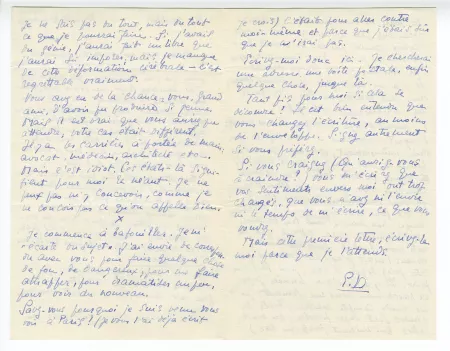 Je ne suis pas du tout, mais du tout
ce que je pourrais faire. Si j'avais
du génie, j'aurais fait un livre que
j'aurais dû imposer, mais je manque
de cette déformation cérébrale - c'est
regrettable vraiment.
Vous avez eu de la chance, vous, grand
ami, d'avoir pu produire si jeune.
Mais il est vrai que vous aviez pu
attendre, votre cas était différent.
Il y a les carrières à portée de main,
avocat, médecin, architecte etc...
Mais c'est idiot. Ces états-là signi-
fient pour moi le néant. Je ne
peux pas m'y concevoir, comme
ne conçois pas ce qu'on appelle bien.
x
Je commence à bafouiller. Je m'
écarte du sujet. J'ai envie de
avec vous pour faire quelque chose
de fou, de dangereux, pour me faire
attraper, pour dramatiser un peu,
pour voir du nouveau.
Savez-vous pourquoi je suis venu vous
voir à Paris? (Je vous l'ai déjà écrit
je crois) c'était pour aller contre
moi-même et parce que j'étais sûr
que je n'irai pas.
Ecrivez-moi donc ici. Je chercherai
une adresse, une boîte postale, enfin
quelque chose, jusque là.
Tant pis pour moi si cela se
découvre! Il est bien entendu que
vous changez l'écriture, au moins
de l'enveloppe. Signez autrement
si vous préférez.
Si vous craignez (Qu'auriez-vous
à craindre?) Vous m'écrirez que
vos sentiments envers moi ont trop
changés, que vous n'avez ni l'envie
ni le temps de m'écrire, ce que vous
voudrez.
Mais cette première lettre, écrivez-la
moi parce que je l'attends.
P.D